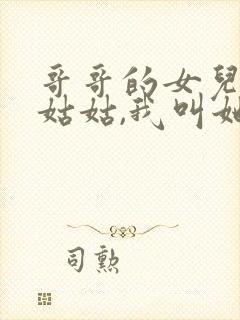 哥哥的女兒
姑姑,我叫她
司勲